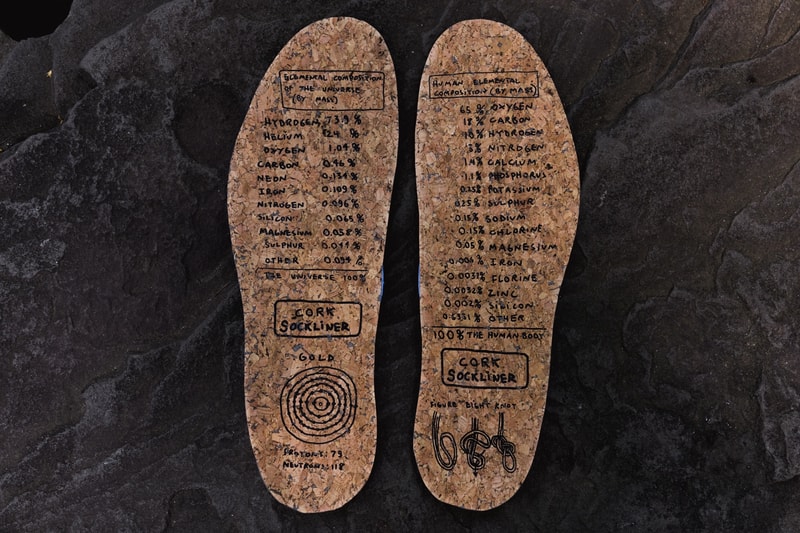 ELEMENTAL COMPOSITION
OF THE UNIVERSE
(BY MASS)
HYDROGEN 73.9 %
HELIUM 24 %
OXYGEN 1.04 %
CARBON 0.46 %
NEON 0.134 %
IRON 0.109 %
NITROGEN 0.096 %
SILICON 0.065 %
MAGNESIUM 0.058 %
SULPHUR 0.044 %
OTHER 0.094 %
THE UNIVERSE 100%
CORK
SOCKLINER
GOLD
PROTONS: 79
NEUTRONS: 118
HUMAN ELEMENTAL
COMPOSITION (BY MASS)
65 % OXYGEN
18 % CARBON
10 % HYDROGEN
3% NITROGEN
1.4% CALCIUM
1.1% PHOSPHORUS
0.25% POTASSIUM
0.25 % SULPHUR
0.15% SODIUM
0.15% CHLORINE
0.05% MAGNESIUM
0.006% IRON
0.0037% FLORINE
0.0032% ZINC
0.002% SILICON
OTHER
100% THE HUMAN BODY
CORK
SOCKLINER
FIGURE EIGHT KNOT